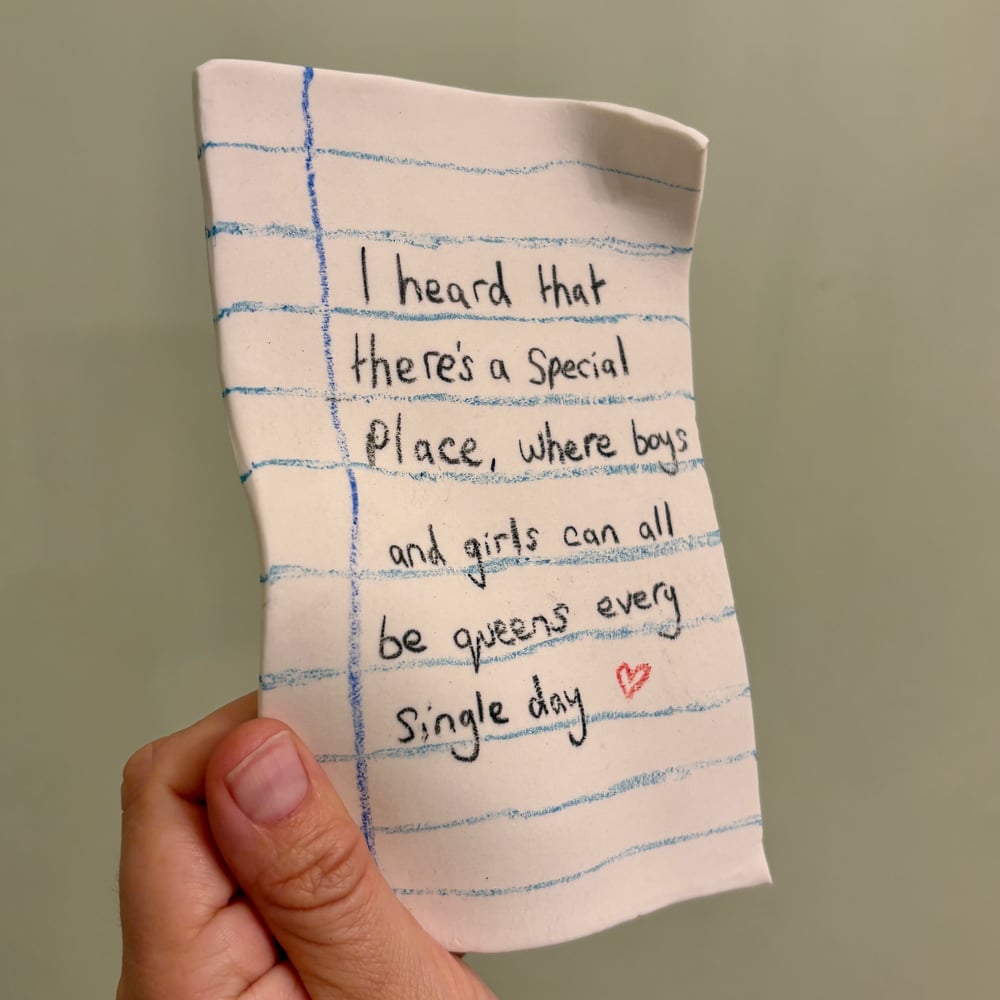 I heard that
there's a Special
Place, where boys
and girls can all
be queens every
single day